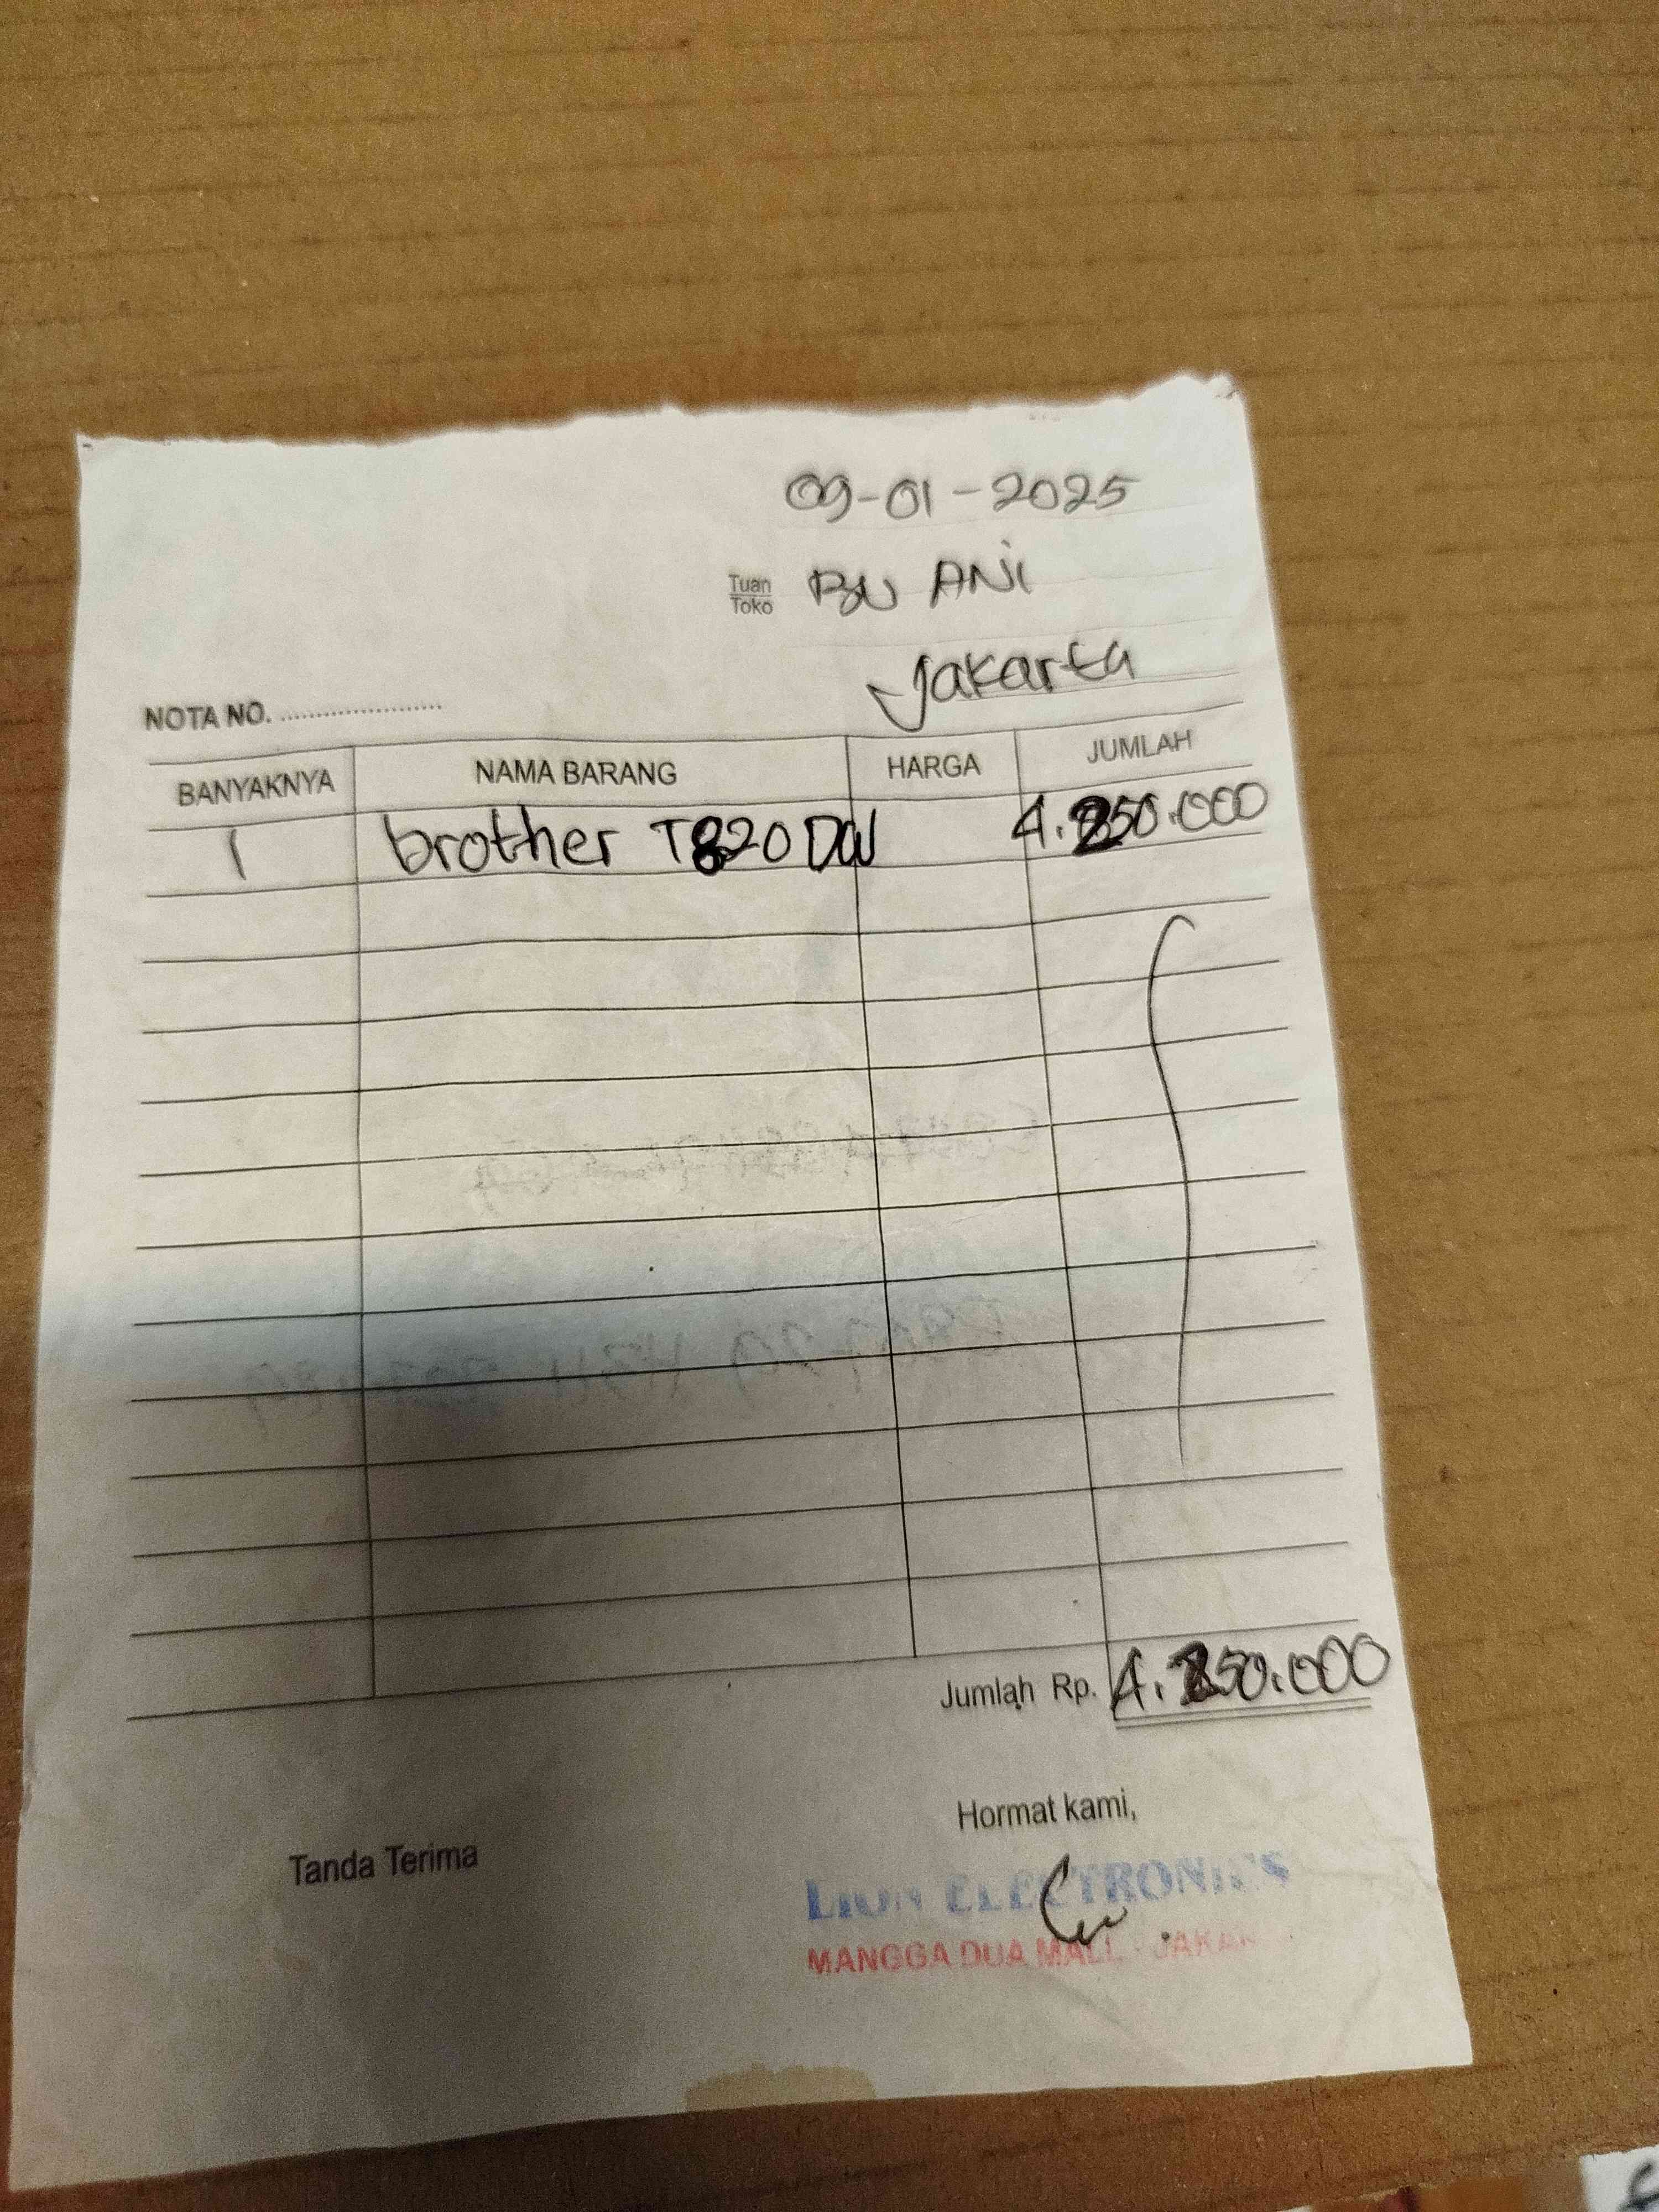 09-01-2025
Tuan
Toko
BU ANI
Jakarta
NOTA NO. ........................
BANYAKNYA NAMA BARANG HARGA JUMLAH
1 brother T820DW 4.250.000
Jumlah Rp. 4.250.000
Tanda Terima
Hormat kami,
LION ELECTRONICS
MANGGA DUA MALL - JAKAR